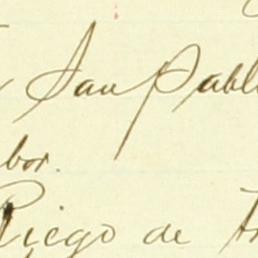 San Pabl
bor.
Riego de